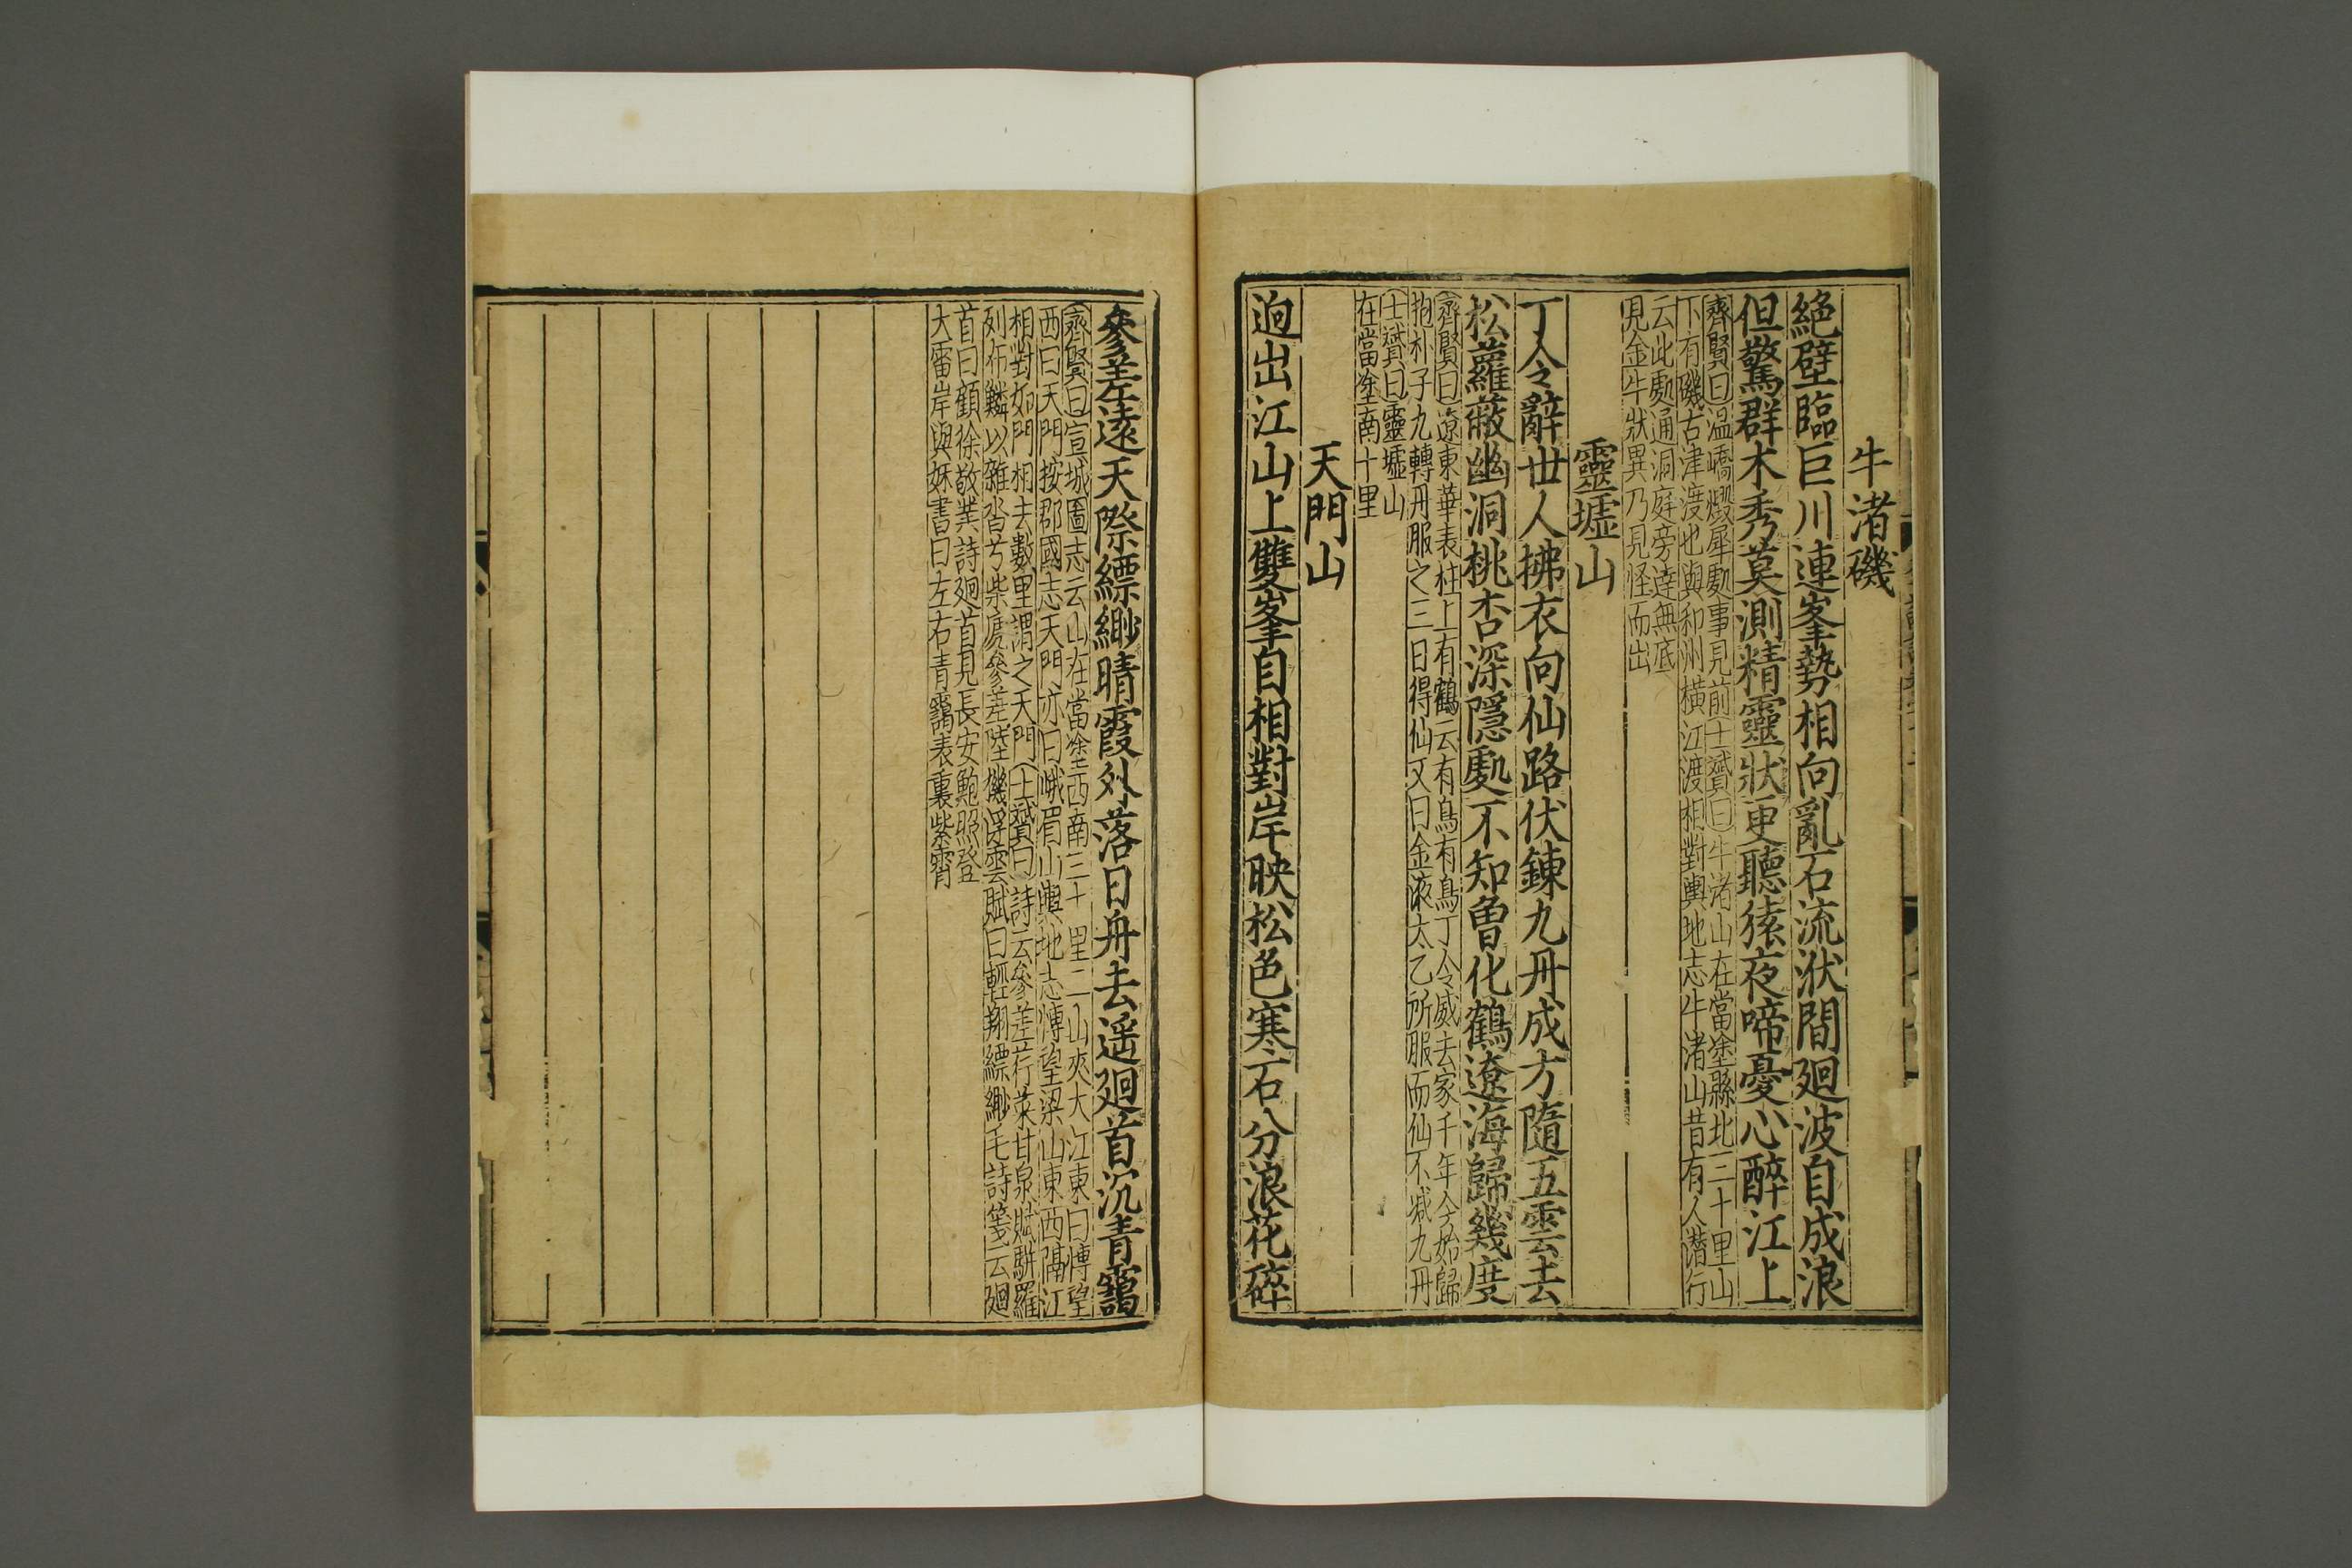 牛渚磯
絶壁臨巨川連峯勢相向亂石流洑間廻波自成浪
但驚群木秀莫測精靈狀更聽猿夜啼憂心醉江上
齊賢曰温嶠燬犀處事見前士贇曰牛渚山在當塗縣北三十里山
下有磯古津渡也與和州橫江渡相對輿地志牛渚山昔有人潛行
云此處通洞庭旁達無底
見金牛狀異乃見怪而出
靈墟山
丁令辭世人拂衣向仙路伏鍊九丹成方隨五雲去
松蘿蔽幽洞桃杏深隱處不知曾化鶴遼海歸幾度
齊賢曰遼東華表柱上有鶴云有鳥有鳥丁令威去家千年今始歸
抱朴子九轉丹服之三日得仙又曰金液太乙所服而仙不減九丹
士贇曰靈墟山
在當塗南十里
天門山
逈出江山上雙峯自相對岸映松色寒石分浪花碎
參差遠天際縹緲晴霞外落日舟去遥廻首沉青靄
齊賢曰宣城圖志云山在當塗西南三十里二山夾大江東曰博望
西曰天門按郡國志天門亦曰峨眉山輿地志博望梁山東西隔江
相對如門相去數里謂之天門士贇曰詩云參差荇菜甘泉賦駢羅
列布鱗以雜沓兮柴虒參差陸機浮雲賦曰輕翔縹緲毛詩箋云廻
首曰顧徐敬業詩廻首見長安鮑照登
大雷岸與妹書曰左右青靄表裏紫霄